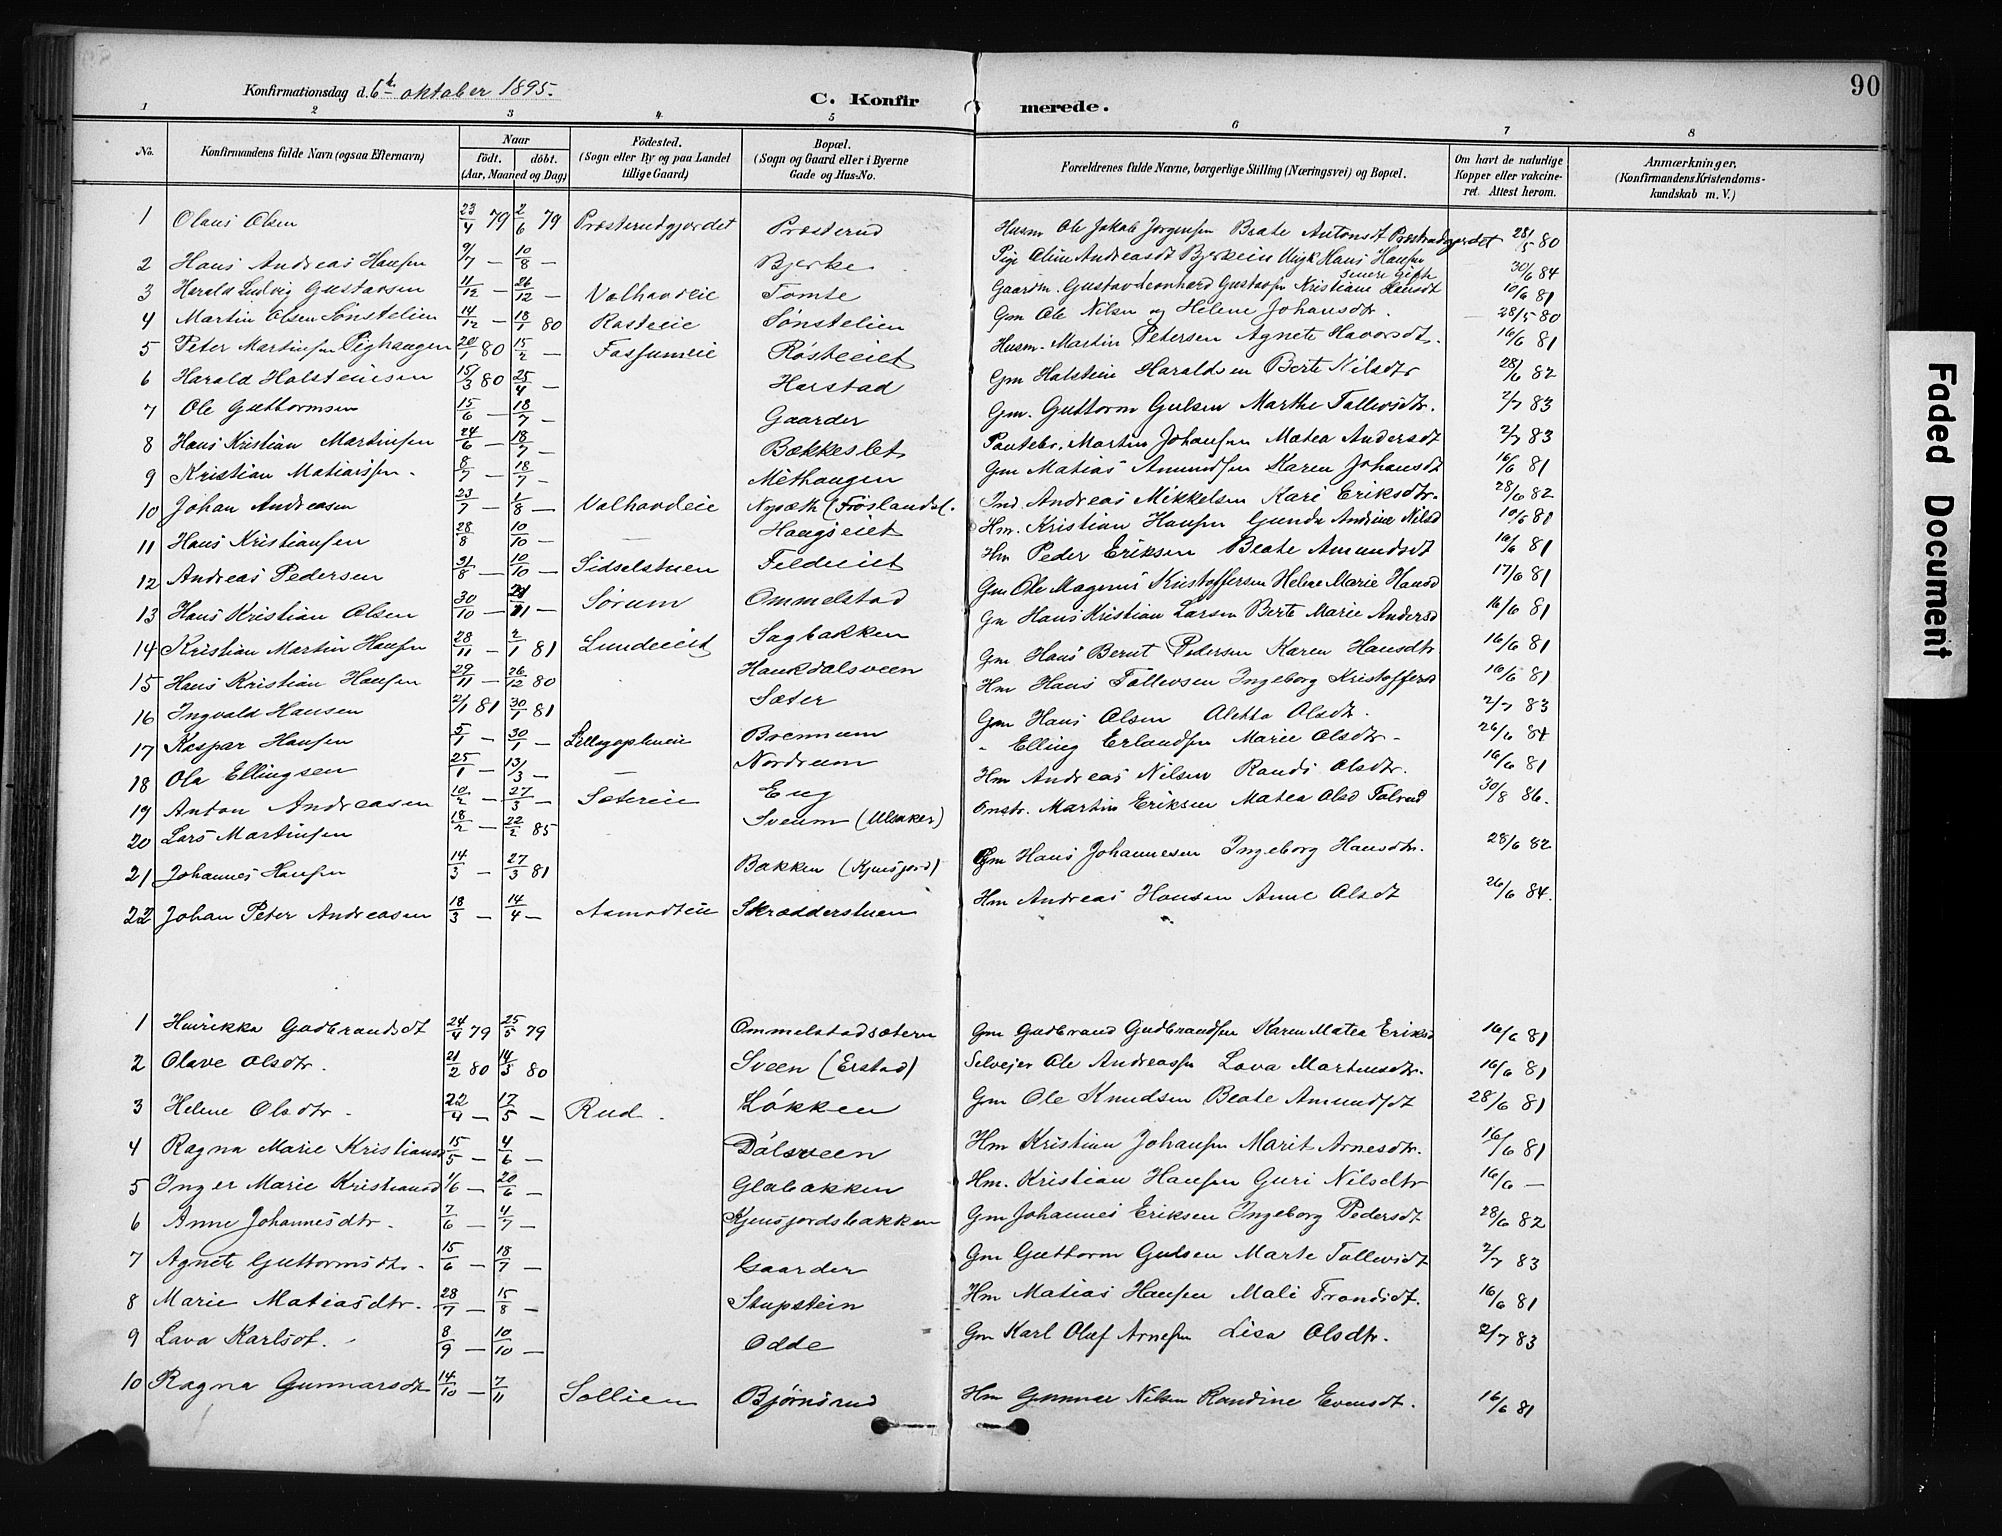 90
Konfirmationsdag d. 6te oktober 1895.
C. Konfirmerede.
1 2 3 4 5 6 7 8
No.
Konfirmandens fulde Navn (ogsaa Efternavn)
Naar
födt. döbt.
(Aar, Maaned og Dag)
Födested.
(Sogn eller By og paa Landet
tillige Gaard)
Bopæl.
(Sogn og Gaard eller i Byerne
Gade og Hus-No.
Forældrenes fulde Navne, borgerlige Stilling (Næringsvei) og Bopæl.
Om havt de naturlige
Kopper eller vakcine-
ret. Attest herom.
Anmærkninger.
(Konfirmandens Kristendoms-
kundskab m. V.)
1 Olaus Olsen 23/4 79 2/6 79 Præsterudgjordet Præsterud Husm Ole Jakob Jørgensen Beate Antonsdt Præsterudgjordet 28/5 80
2 Hans Andreas Hansen 9/7 — 10/8 — Bjerke Pige Oline Andreasdt Bjerkeie Ungk Hans Hansen 30/6 84
3 Harald Ludvig Gustavsen 11/12 — 26/12 — Valhovdeie Tomte Gaardm. Gustav Leonhard Gustavsen Kristiane Hansdt 10/6 81
4 Martin Olsen Sønstelien 14/12 — 18/1 80 Rasteeie Sønstelien Gm Ole Nilsen og Helene Johansdtr. 28/5 80
5 Peter Martinsen Pighaugen 20/1 80 15/2 — Fossumeie Røsteeiet Husm. Martin Petersen Agnete Havorsdt. 16/6 81
6 Harald Halsteinsen 15/3 80 25/4 — Harstad Gm Halstein Haraldsen Berte Nilsdtr 28/6 82
7 Ole Guttormsen 15/6 — 18/7 — Gaarder Gm. Guttorm Gulsen Marthe Tollevsdtr. 2/7 83
8 Hans Kristian Martinsen 24/6 — 18/7 — Bækkeslet Pantebr. Martin Johansen Matea Andersdt 2/7 83
9 Kristian Matiassen. 8/7 — 18/7 — Methaugen Gm Matias Amundsen Karen Johansdt 16/6 81
10 Johan Andreasen 23/7 — 1/8 — Valhovdeie Nysæth (Frøslandsl. Ind. Andreas Mikkelsen Kari Eriksdtr. 28/6 82
11 Hans Kristiansen 28/8 10/10 — Haugseiet Hm. Kristian Hansen Gunda Andrine Nilsd 10/6 81
12 Andreas Pedersen 31/8 — 10/10 — Sidselstuen Feldeiet Hm Peder Eriksen Beate Amundsdt 16/6 81
13 Hans Kristian Olsen 30/10 — 21/11 — Sørum Ommelstad Gm Ole Magnus Kristoffersen Helene Marie Hansd 17/6 81
14 Kristian Martin Hansen 28/11 — 2/1 81 Lundeeiet Sagbakken Gm Hans Kristian Larsen Berte Marie Andersd 16/6 81
15 Hans Kristian Hansen 29/11 — 26/12 80 Haukdalsveen Gm Hans Bernt Pedersen Karen Hansdtr 16/6 81
16 Ingvald Hansen 2/1 81 30/1 81 Sæter Hm Hans Tollevsen Ingeborg Kristoffersd 16/6 81
17 Kaspar Hansen 5/1 — 30/1 — Brennum Gm Hans Olsen Aletta Olsdtr. 2/7 83
18 Ole Ellingsen 25/1 — 13/3 — — Nordrum - Elling Erlandsen Marie Olsdtr. 26/6 84
19 Anton Andreasen 10/2 — 27/3 — Sætereie Eng Hm Andreas Nilsen Randi Olsdtr. 16/6 81
20 Lars Martinsen 18/2 — 22/2 85 Sveum (Ulsaker) Martin Eriksen Matea Olsd 30/8 86.
21 Johannes Hansen 14/3 — 27/3 81 Bakken (Kjensjord) Gm Hans Johannesen Ingeborg Hansdtr. 28/6 82
22 Johan Peter Andreasen 18/3 — 14/4 — Aamodteie Skrædderstuen Hm Andreas Hansen Anne Olsdt 26/6 84.
1 Hinrikka Gudbrandsdt 24/4 79 25/5 79 Ommelstadsætern Gm Gudbrand Gudbrandsen Karen Matea Eriksd 16/6 81
2 Olave Olsdtr. 21/2 80 14/3 80 Sveen (Erstad) Selvejer Ole Andreassen Lova Martinsdtr. 16/6 81
3 Helene Olsdtr. 22/4 — 17/5 — Rud. Løkken Gm Ole Knudsen Beate Amundsdt 28/6 81
4 Ragna Marie Kristiansd 15/5 — 4/6 — Dølsveen Hm Kristian Johansen Marit Arnesdtr. 16/6 81
5 Inger Marie Kristiansd 1/6 — 20/6 — Glabakken Hm. Kristian Hansen Guri Nilsdtr 16/6 —
6 Anne Johannesdtr. 7/6 — 4/7 — Kjensjordsbakken Gm Johannes Eriksen Ingeborg Pedersdt 28/6 82
7 Agnete Guttormsdtr. 15/6 — 18/7 — Gaarder Gm Guttorm Gulsen Marte Tollevsdt 2/7 83
8 Marie Matiasdtr. 28/7 — 15/8 — Stupstein Hm Matias Hansen Mali Trondsdt. 16/6 81
9 Lava Karlsdt. 8/9 — 10/10 — Odde Gm Karl Olaf Arnesen Lisa Olsdtr. 2/7 83
10 Ragna Gunnarsdtr 14/10 — 7/11 Sollien Bjørnsrud Hm Gunnar Nilsen Randine Evensdt. 16/6 81
Faded Document